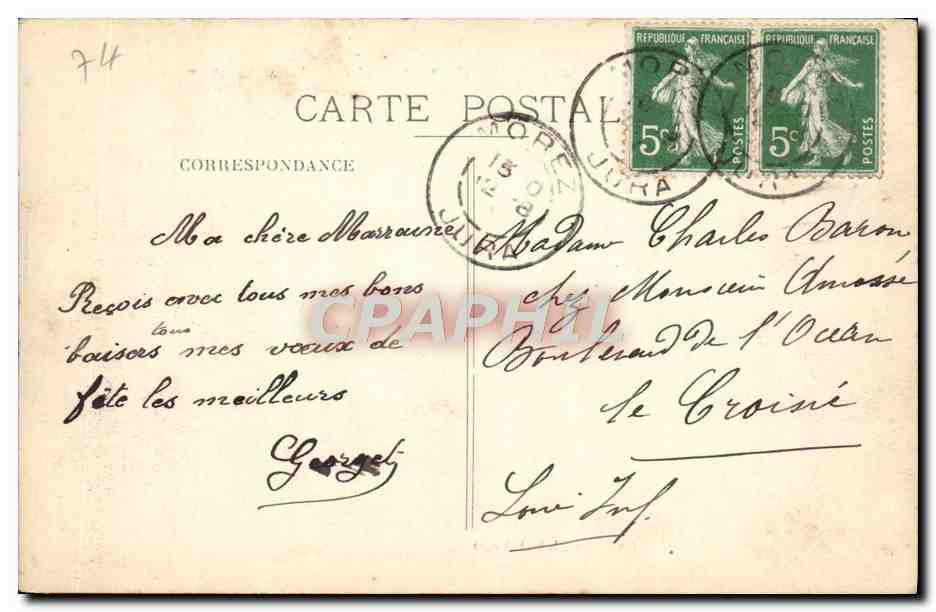 74
REPUBLIQUE FRANÇAISE REPUBLIQUE FRANÇAISE
5c POSTES 5c POSTES
CARTE POSTAL
MOREZ
15
12
JURA
MOR
JURA
CORRESPONDANCE
Ma chère Marraine
Reçois avec tous mes bons
tous
baisers mes vœux de
fête les meilleurs
Georget
Madame Charles Baron
chez Monsieur Amossé
Boulevard de l'Océan
le Croisic
Loire Inf.
CPAPHIL